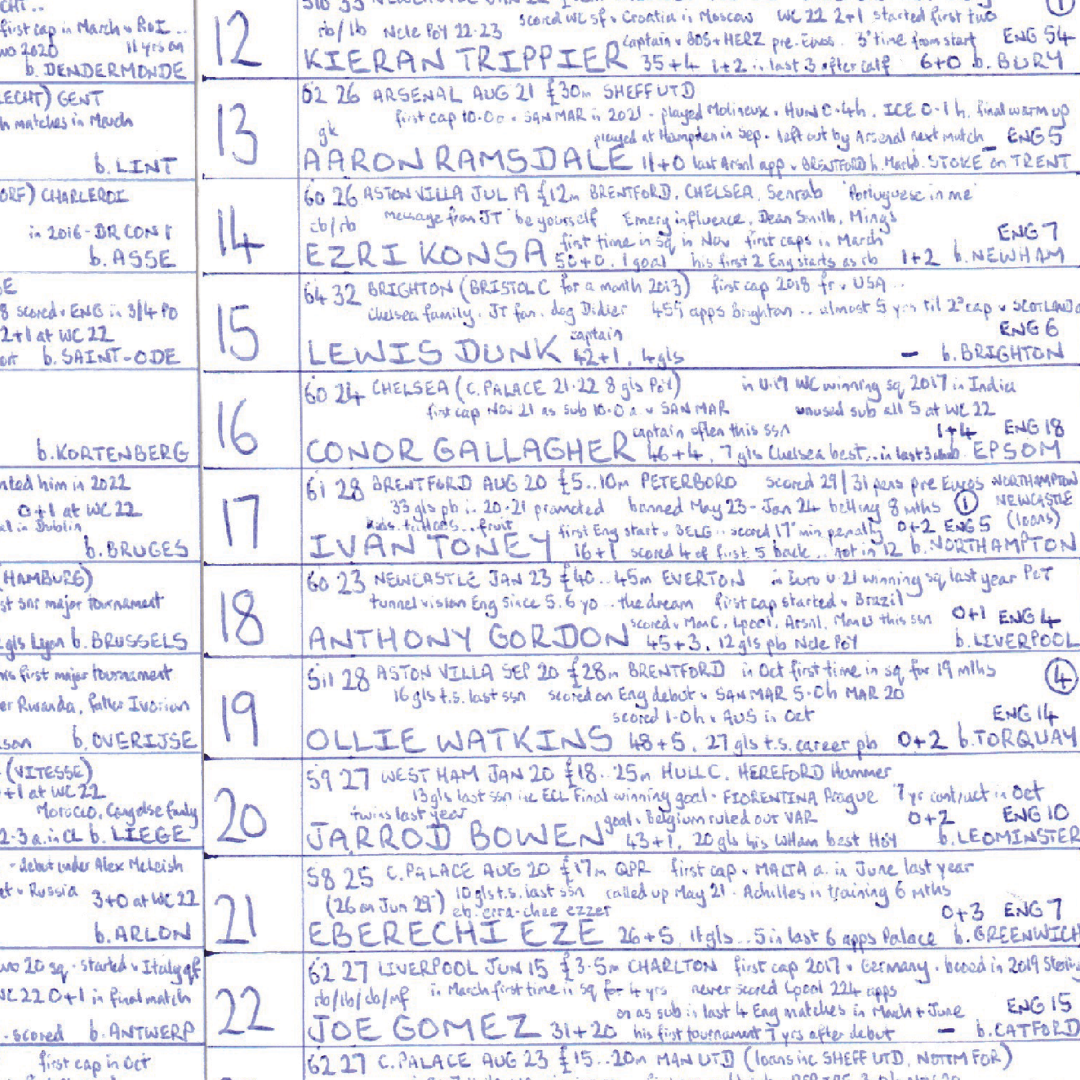 first cap in March v ROI ..
11 yrs on
b. DENDERMONDE
GENT
matches in March
b. LINT
CHARLEROI
in 2016 - DR CON 1
b. ASSE
8 scored v ENG in 3/4 PO
2+1 at WC 22
b. SAINT-ODE
b. KORTENBERG
him in 2022
0+1 at WC 22
in Dublin
b. BRUGES
HAMBURG)
snr major tournament
gls Lyon b. BRUSSELS
his first major tournament
Rwanda, father Ivorian
b. OVERIJSE
(VITESSE)
+1 at WC 22
Morocco, Congolese family
2-3 a. in CL b. LIEGE
- debut under Alex McLeish
v Russia 3+0 at WC 22
b. ARLON
20 sq - started v Italy qf
WC 22 0+1 in final match
. scored b. ANTWERP
first cap in Oct
12
rb/lb Ncle PoY 22-23 scored WC sf v Croatia in Moscow WC 22 2+1 started first two
captain v BOS+HERZ pre-Euros. 3rd time from start ENG 54
KIERAN TRIPPIER 35+4 1+2 in last 3 after calf 6+0 b. BURY
13
62 26 ARSENAL AUG 21 £30m SHEFF UTD
first cap 10-0 a v SAN MAR in 2021 - played Molineux v HUN 0-4h, ICE 0-1 h, final warm up
gk played at Hampden in Sep - left out by Arsenal next match - ENG 5
AARON RAMSDALE 11+0 last Arsnl app v BRENTFORD h. March. STOKE on TRENT
14
60 26 ASTON VILLA JUL 19 £12m BRENTFORD, CHELSEA, Senrab 'Portuguese in me'
cb/rb message from JT 'be yourself' Emery influence, Dean Smith, Mings
first time in sq in Nov first caps in March ENG 7
EZRI KONSA 50+0, 1 goal his first 2 Eng starts as rb 1+2 b. NEWHAM
15
64 32 BRIGHTON (BRISTOL C for a month 2013) first cap 2018 fr v USA ..
Chelsea family, JT fan, dog Didier 459 apps Brighton .. almost 5 yrs til 2nd cap v SCOTLAND
captain ENG 6
LEWIS DUNK 42+1, 4gls - b. BRIGHTON
16
60 24 CHELSEA (C. PALACE 21-22 8 gls PoY) in U-17 WC winning sq 2017 in India
first cap Nov 21 as sub 10-0 a v SAN MAR unused sub all 5 at WC 22
captain often this ssn 1+4 ENG 18
CONOR GALLAGHER 46+4, 7 gls Chelsea best .. EPSOM
17
61 28 BRENTFORD AUG 20 £5..10m PETERBORO scored 29/31 pens pre Euros NORTHAMPTON
33 gls pb in 20-21 promoted banned May 23 - Jan 24 betting 8 mths 1 NEWCASTLE
first Eng start v BELG.. scored 17' min penalty 0+2 ENG 5 (loans)
IVAN TONEY 16+1 scored 4 of first 5 back ... not in 12 b. NORTHAMPTON
18
60 23 NEWCASTLE JAN 23 £40..45m EVERTON in Euro U-21 winning sq last year PoT
tunnel vision Eng since 5.6 yo .. the dream first cap started v Brazil
scored v Man C, Lpool, Arsnl, Man U this ssn 0+1 ENG 4
ANTHONY GORDON 45+3, 12 gls pb Ncle PoY b. LIVERPOOL
19
511 28 ASTON VILLA SEP 20 £28m BRENTFORD in Oct first time in sq for 19 mths 4
16 gls t.s. last ssn scored on Eng debut v SAN MAR 5-0h MAR 20
scored 1-0h v AUS in Oct ENG 14
OLLIE WATKINS 48+5, 27 gls t.s. career pb 0+2 b. TORQUAY
20
59 27 WEST HAM JAN 20 £18..25m HULL C, HEREFORD Hammer
13 gls last ssn inc ECL Final winning goal - FIORENTINA Prague 7 yr contract in Oct
twins last year goal v Belgium ruled out VAR 0+2 ENG 10
JARROD BOWEN 43+1, 20 gls his WHam best HoY b. LEOMINSTER
21
58 25 C. PALACE AUG 20 £17m QPR first cap v MALTA a. in June last year
(26 on Jun 29th) 10 gls t.s. last ssn called up May 21 - Achilles in training 6 mths
eb-erra-chee ezzer 0+3 ENG 7
EBERECHI EZE 26+5, 11gls .. 5 in last 6 apps Palace b. GREENWICH
22
62 27 LIVERPOOL JUN 15 £3.5m CHARLTON first cap 2017 v Germany. booed in 2019 Sterling
rb/lb/cb/mf in March first time in sq for 4 yrs never scored Lpool 224 apps
on as sub in last 4 Eng matches in March + June ENG 15
JOE GOMEZ 31+20 his first tournament 7 yrs after debut - b. CATFORD
62 27 C. PALACE AUG 23 £15..20m MAN UTD (loans inc SHEFF UTD, NOTTM FOR)